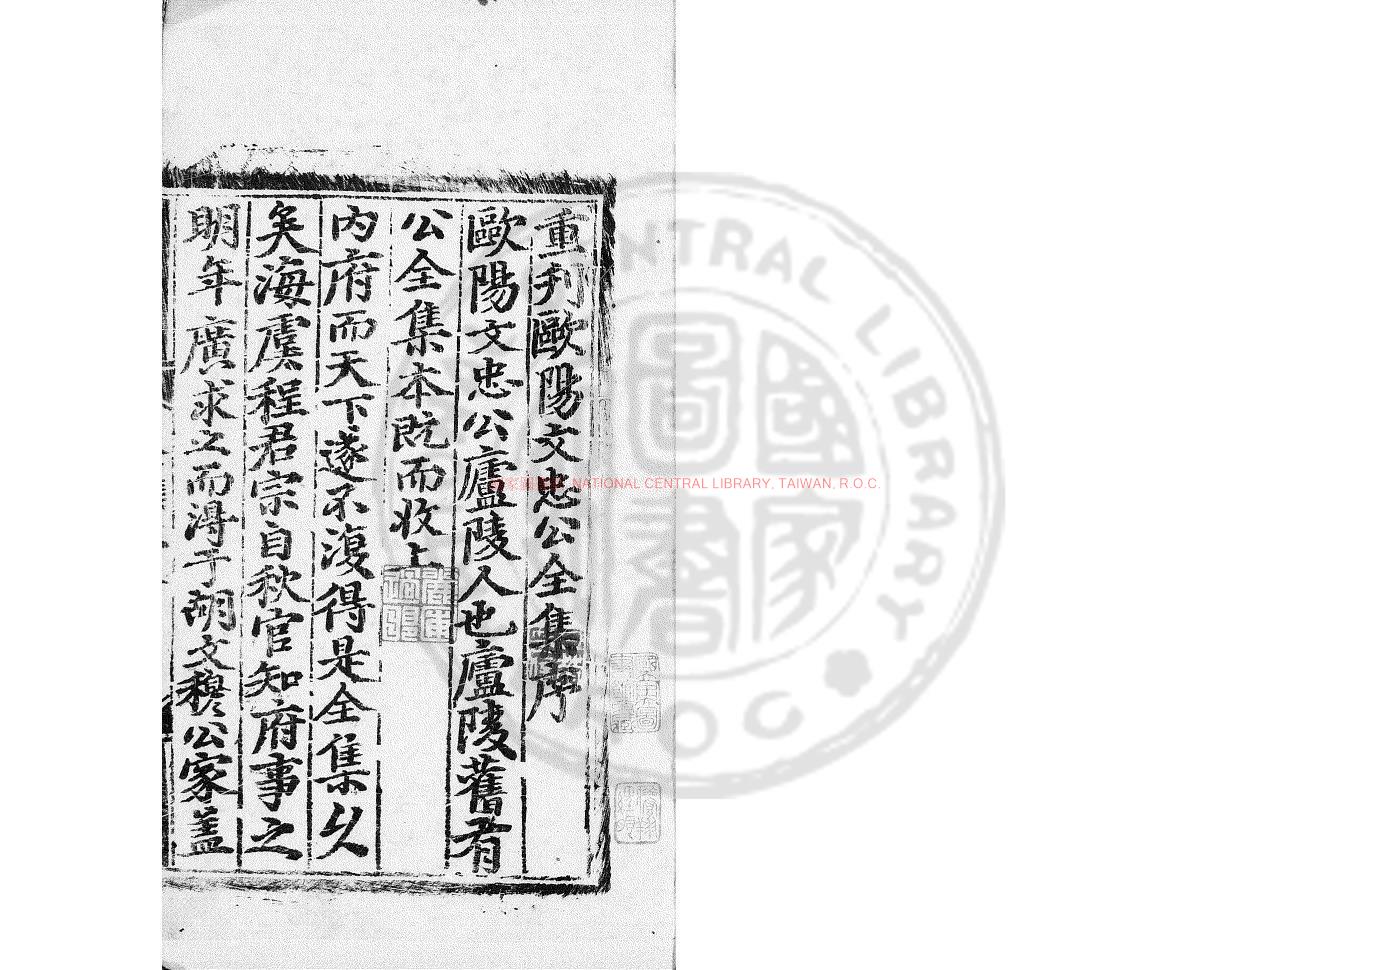 重刋歐陽文忠公全集序
歐陽文忠公廬陵人也廬陵舊有
公全集本既而收上
内府而天下遂不復得是全集乆
矣海虞程君宗自秋官知府事之
明年廣求之而淂于胡文穆公家盖
NATIONAL CENTRAL LIBRARY, TAIWAN, R.O.C.